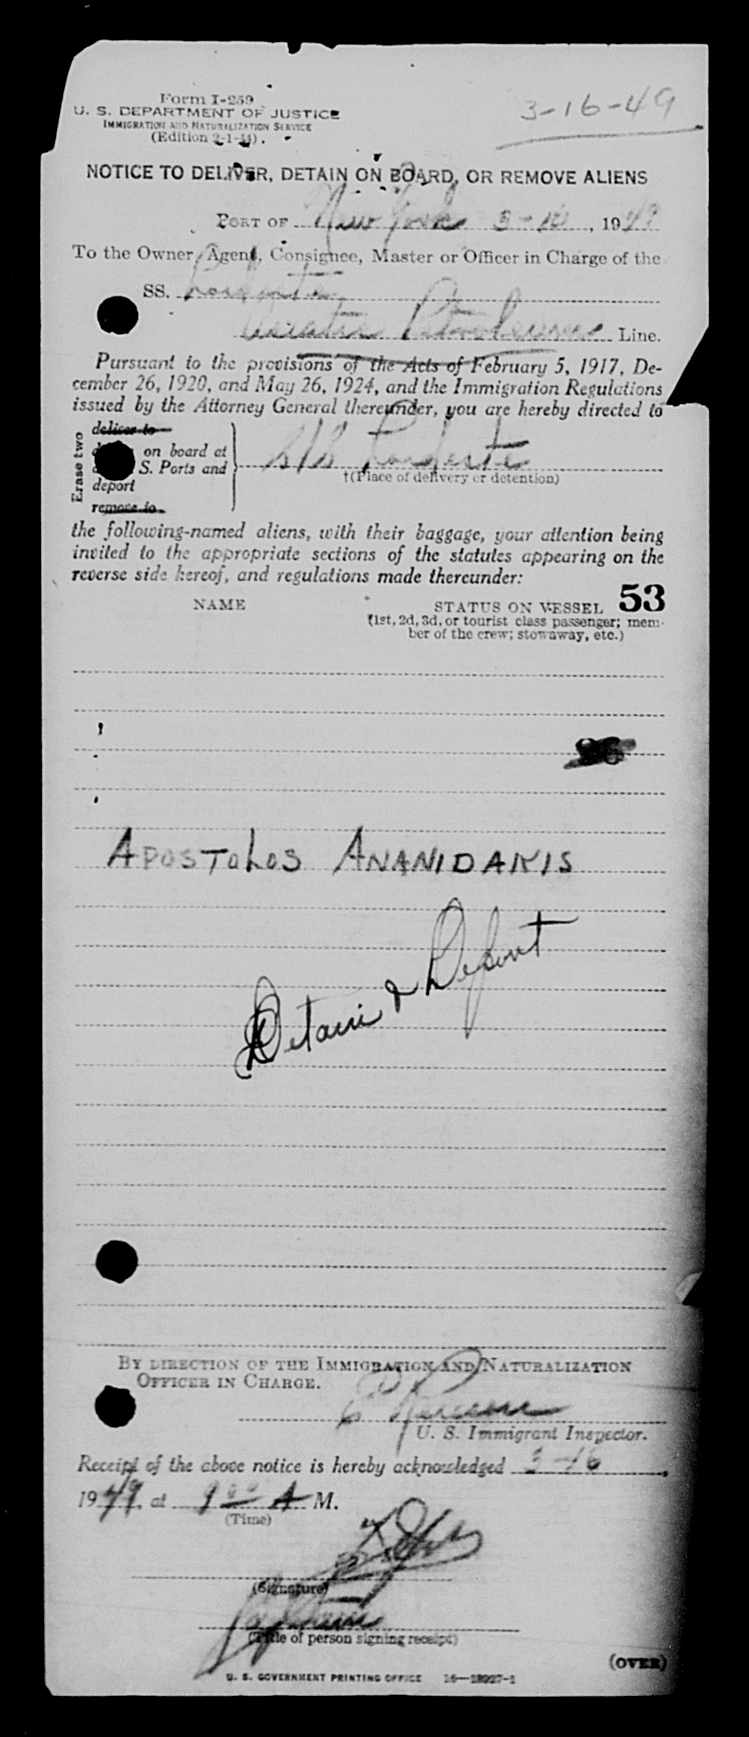 3-16-49
Form I-259
U. S. DEPARTMENT OF JUSTICE
IMMIGRATION AND NATURALIZATION SERVICE
(Edition 2-1-44)
NOTICE TO DELIVER, DETAIN ON BOARD, OR REMOVE ALIENS
PORT OF New York 3-16, 1949
To the Owner, Agent, Consignee, Master or Officer in Charge of the
SS.
Asiatic Petroleum Line.
Pursuant to the provisions of the Acts of February 5, 1917, De-
cember 26, 1920, and May 26, 1924, and the Immigration Regulations
issued by the Attorney General thereunder, you are hereby directed to
Erase two
deliver to
on board at
S. Ports and
deport
remove to
S/S
†(Place of delivery or detention)
the following-named aliens, with their baggage, your attention being
invited to the appropriate sections of the statutes appearing on the
reverse side hereof, and regulations made thereunder:
53
NAME STATUS ON VESSEL
(1st, 2d, 3d, or tourist class passenger; mem-
ber of the crew; stowaway, etc.)
APOSTOLOS ANANIDAKIS
Detain & Deport
BY DIRECTION OF THE IMMIGRATION AND NATURALIZATION
OFFICER IN CHARGE.
U. S. Immigrant Inspector.
Receipt of the above notice is hereby acknowledged 3-16,
1949, at 9 00 A M.
(Time)
(Signature)
Captain
(Title of person signing receipt)
(OVER)
U. S. GOVERNMENT PRINTING OFFICE 16—18927-1